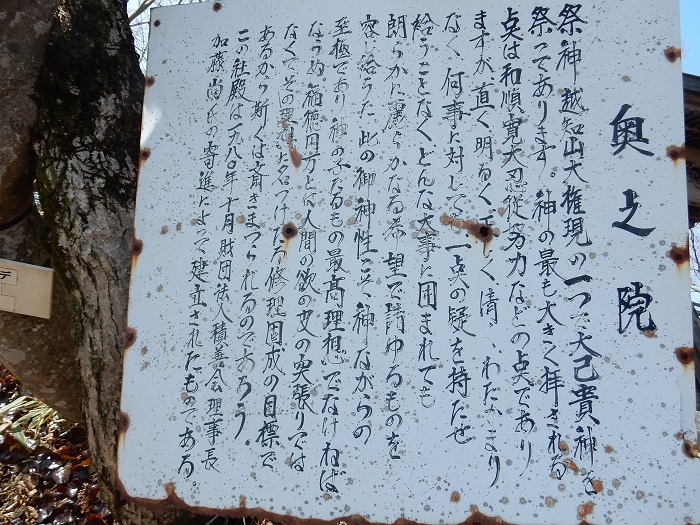 奥之院
祭神 越知山大権現の一つで大己貴神を
祭ってあります。神の最も大きく拝される
点は和順寛大忍従努力などの点であり
ますが直く明るく正しく清くわだかまり
なく何事に対しても一点の疑を持たせ
給うことなくどんな大事に囲まれても
朗らかに麗らかなる希望で
容し給うた此の御神性こそ神ながらの
至極であり神の
なる最高理想でなければ
福徳円万とは人間の欲の皮の突張りでは
なくてその
修理固成の目標で
あるから斯くは斉きまつられるのであろう。
この社殿は一九八〇年十月財団法人積善会理事長
加藤尚氏の寄進によって建立されたものである。
デ